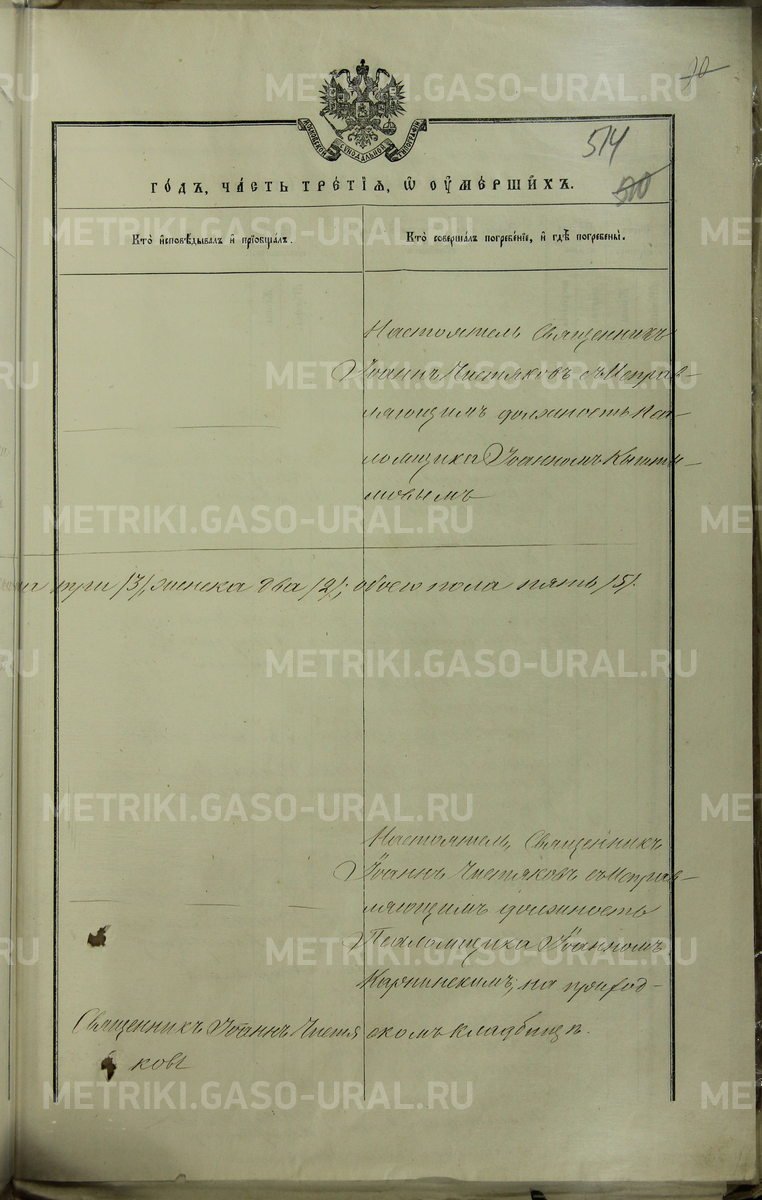 70
514
500
МОСКОВСКОЙ СѴНОДАЛЬНОЙ ТИПОГРАФІИ
го́дъ, ча́сть тре́тїѧ, ѡ҆ ᲂу҆ме́ршихъ.
Кто̀ и҆сповѣ́дывалъ и҆ прїобща́лъ.
Кто̀ соверша́лъ погребе́нїе, и҆ гдѣ̀ погребены̀.
Настоятель Священникъ
Іоаннъ Чистяковъ съ Исправ-
ляющимъ должность Пса-
ломщика Іоанномъ Кышты-
мовымъ
три /3/, женска два /2/; обоего пола пять /5/.
Настоятель, Священникъ
Іоаннъ Чистяковъ съ Исправ-
ляющимъ должность
Псаломщика Іоанномъ
Карпинскимъ, на приход-
скомъ кладбищѣ.
Священникъ Іоаннъ Чистя
ковъ
METRIKI.GASO-URAL.RU